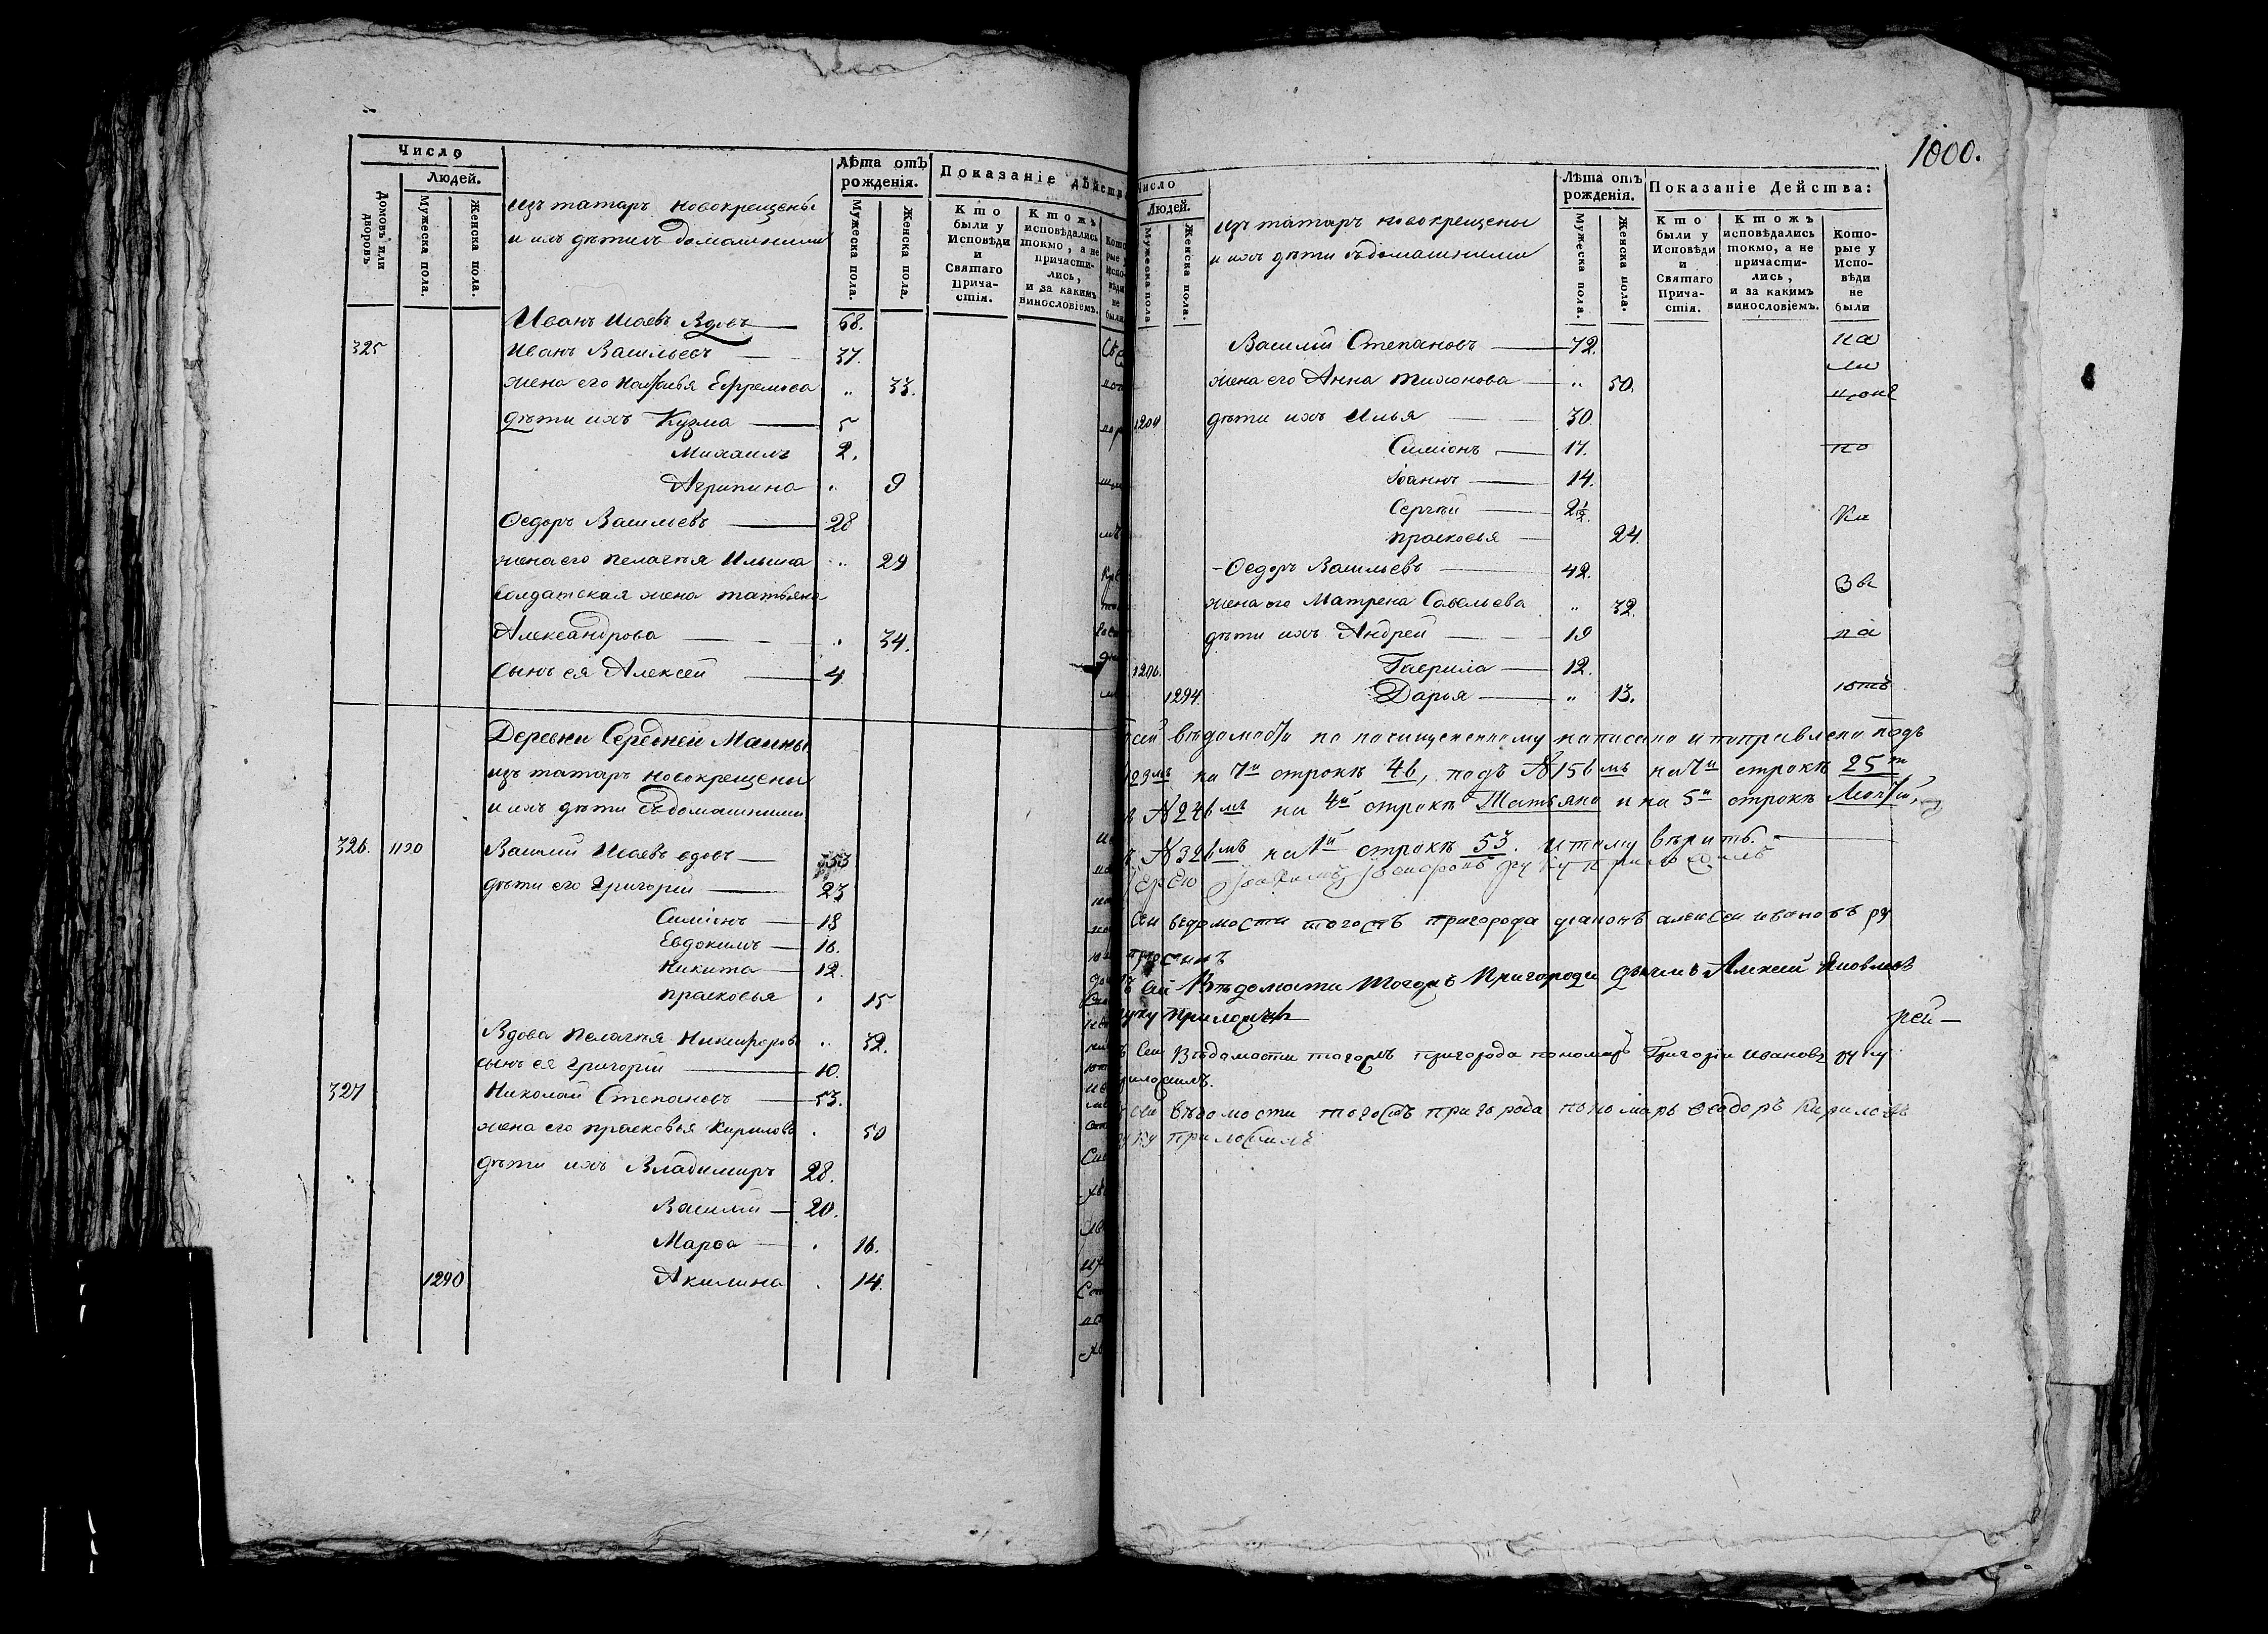 Число
Людей.
Домовъ или дворовъ
Мужеска пола.
Женска пола.
изъ татаръ новокрещены
и ихъ дѣти съ домашними
Лѣта отъ рожденія.
Мужеска пола.
Женска пола.
Показаніе
Кто были у Исповѣди и Святаго Причастія.
Ктожъ исповѣдались токмо, а не причастились, и за какимъ винословіемъ.
Иванъ Исаевъ вдовъ 68.
325 Иванъ Васильевъ 37.
жена его Наталья Ефремова " 33.
дѣти ихъ Кузма 5
Михаилъ 2.
Агрипина " 9
Ѳедоръ Васильевъ 28
жена его Пелагѣя Ильина " 29
солдатская жена Татьяна
Александрова " 34.
сынъ ея Алексей 4
Деревни Середней Маины
изъ татаръ новокрещены
и ихъ дѣти съ домашними
326. 1190 Василий Исаевъ вдовъ 53
дѣти его Григорий 23
Симіонъ 18
Евдокимъ 16.
Никита 12.
Прасковья " 15
Вдова Пелагѣя Никифорова " 32.
сынъ ея Григорій 10.
327 Николай Степановъ 53.
жена его Прасковья Кирилова " 50
дѣти ихъ Владимиръ 28.
Василий 20.
Марѳа " 16.
1290 Акилина " 14.
1000.
Число
Людей.
Мужеска пола
Женска пола.
изъ татаръ новокрещены
и ихъ дѣти съ домашними
Лѣта отъ рожденія.
Мужеска пола.
Женска пола.
Показаніе Действа:
Кто были у Исповѣди и Святаго Причастія.
Ктожъ исповѣдались токмо, а не причастились, и за какимъ винословіемъ.
Которые у Исповѣди не были
Василий Степановъ 72.
жена его Анна Тихонова " 50.
дѣти ихъ Илья 30.
Симіонъ 17.
Іоаннъ 14.
Сергѣй 2½.
Прасковья 24.
Ѳедоръ Васильевъ 42.
жена его Матрена Савельева " 32.
дѣти ихъ Андрей 19
Гаврила 12.
1294 Дарья " 13.
сей вѣдомости по почищенному написано и поправлено подъ
на 7й строкѣ 46, подъ №156мъ на 7й строкѣ 25
№246мъ на 4й строкѣ Татьяна и на 5й строкѣ
№326мъ на 1й строкѣ 53. и тому вѣрить.
сеи ведомости тогожъ пригорода диаконъ алексеи ивановъ ру
сей Вѣдомости тогожъ Пригорода дьячекъ Алексей Яковлевъ
руку приложилъ
сеи Вѣдомости тогожъ пригорода пономарь Григорій Ивановъ руку
приложилъ.
сеи вѣдомости тогожъ пригорода пономарь Ѳеодоръ Кириловъ
руку приложилъ